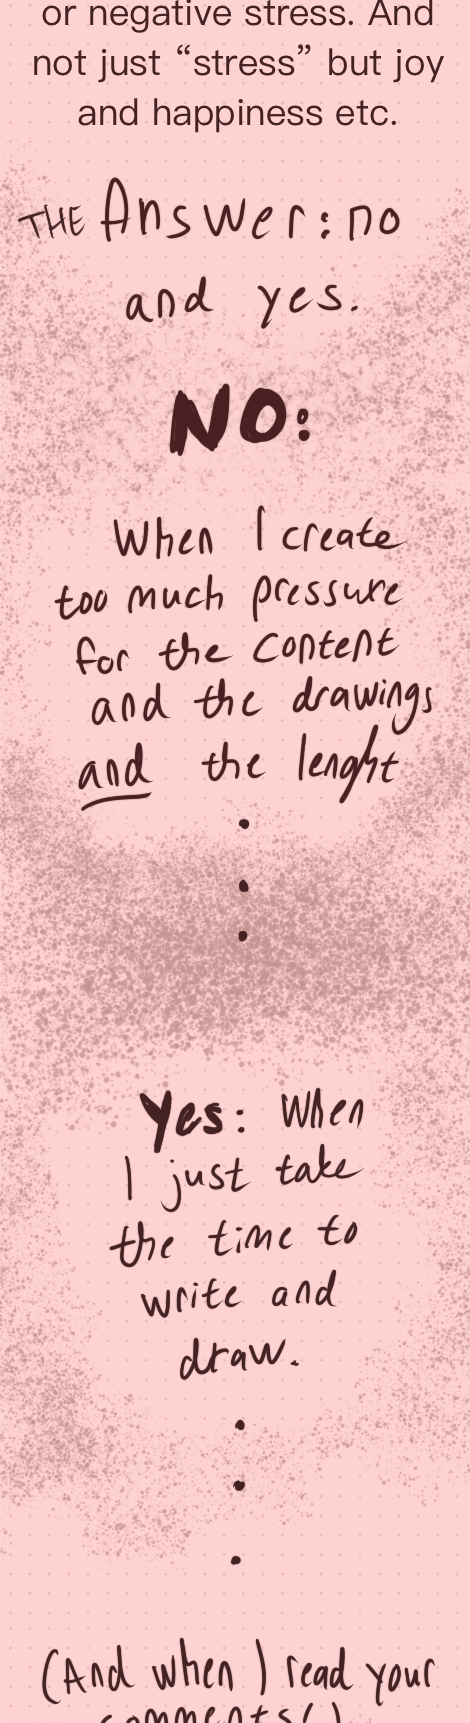 or negative stress. And
not just “stress” but joy
and happiness etc.
THE Answer: no
and yes.
NO:
When I create
too much pressure
for the content
and the drawings
and the lenght
.
.
.
Yes: When
I just take
the time to
write and
draw.
.
.
.
(And when I read your
comments!)